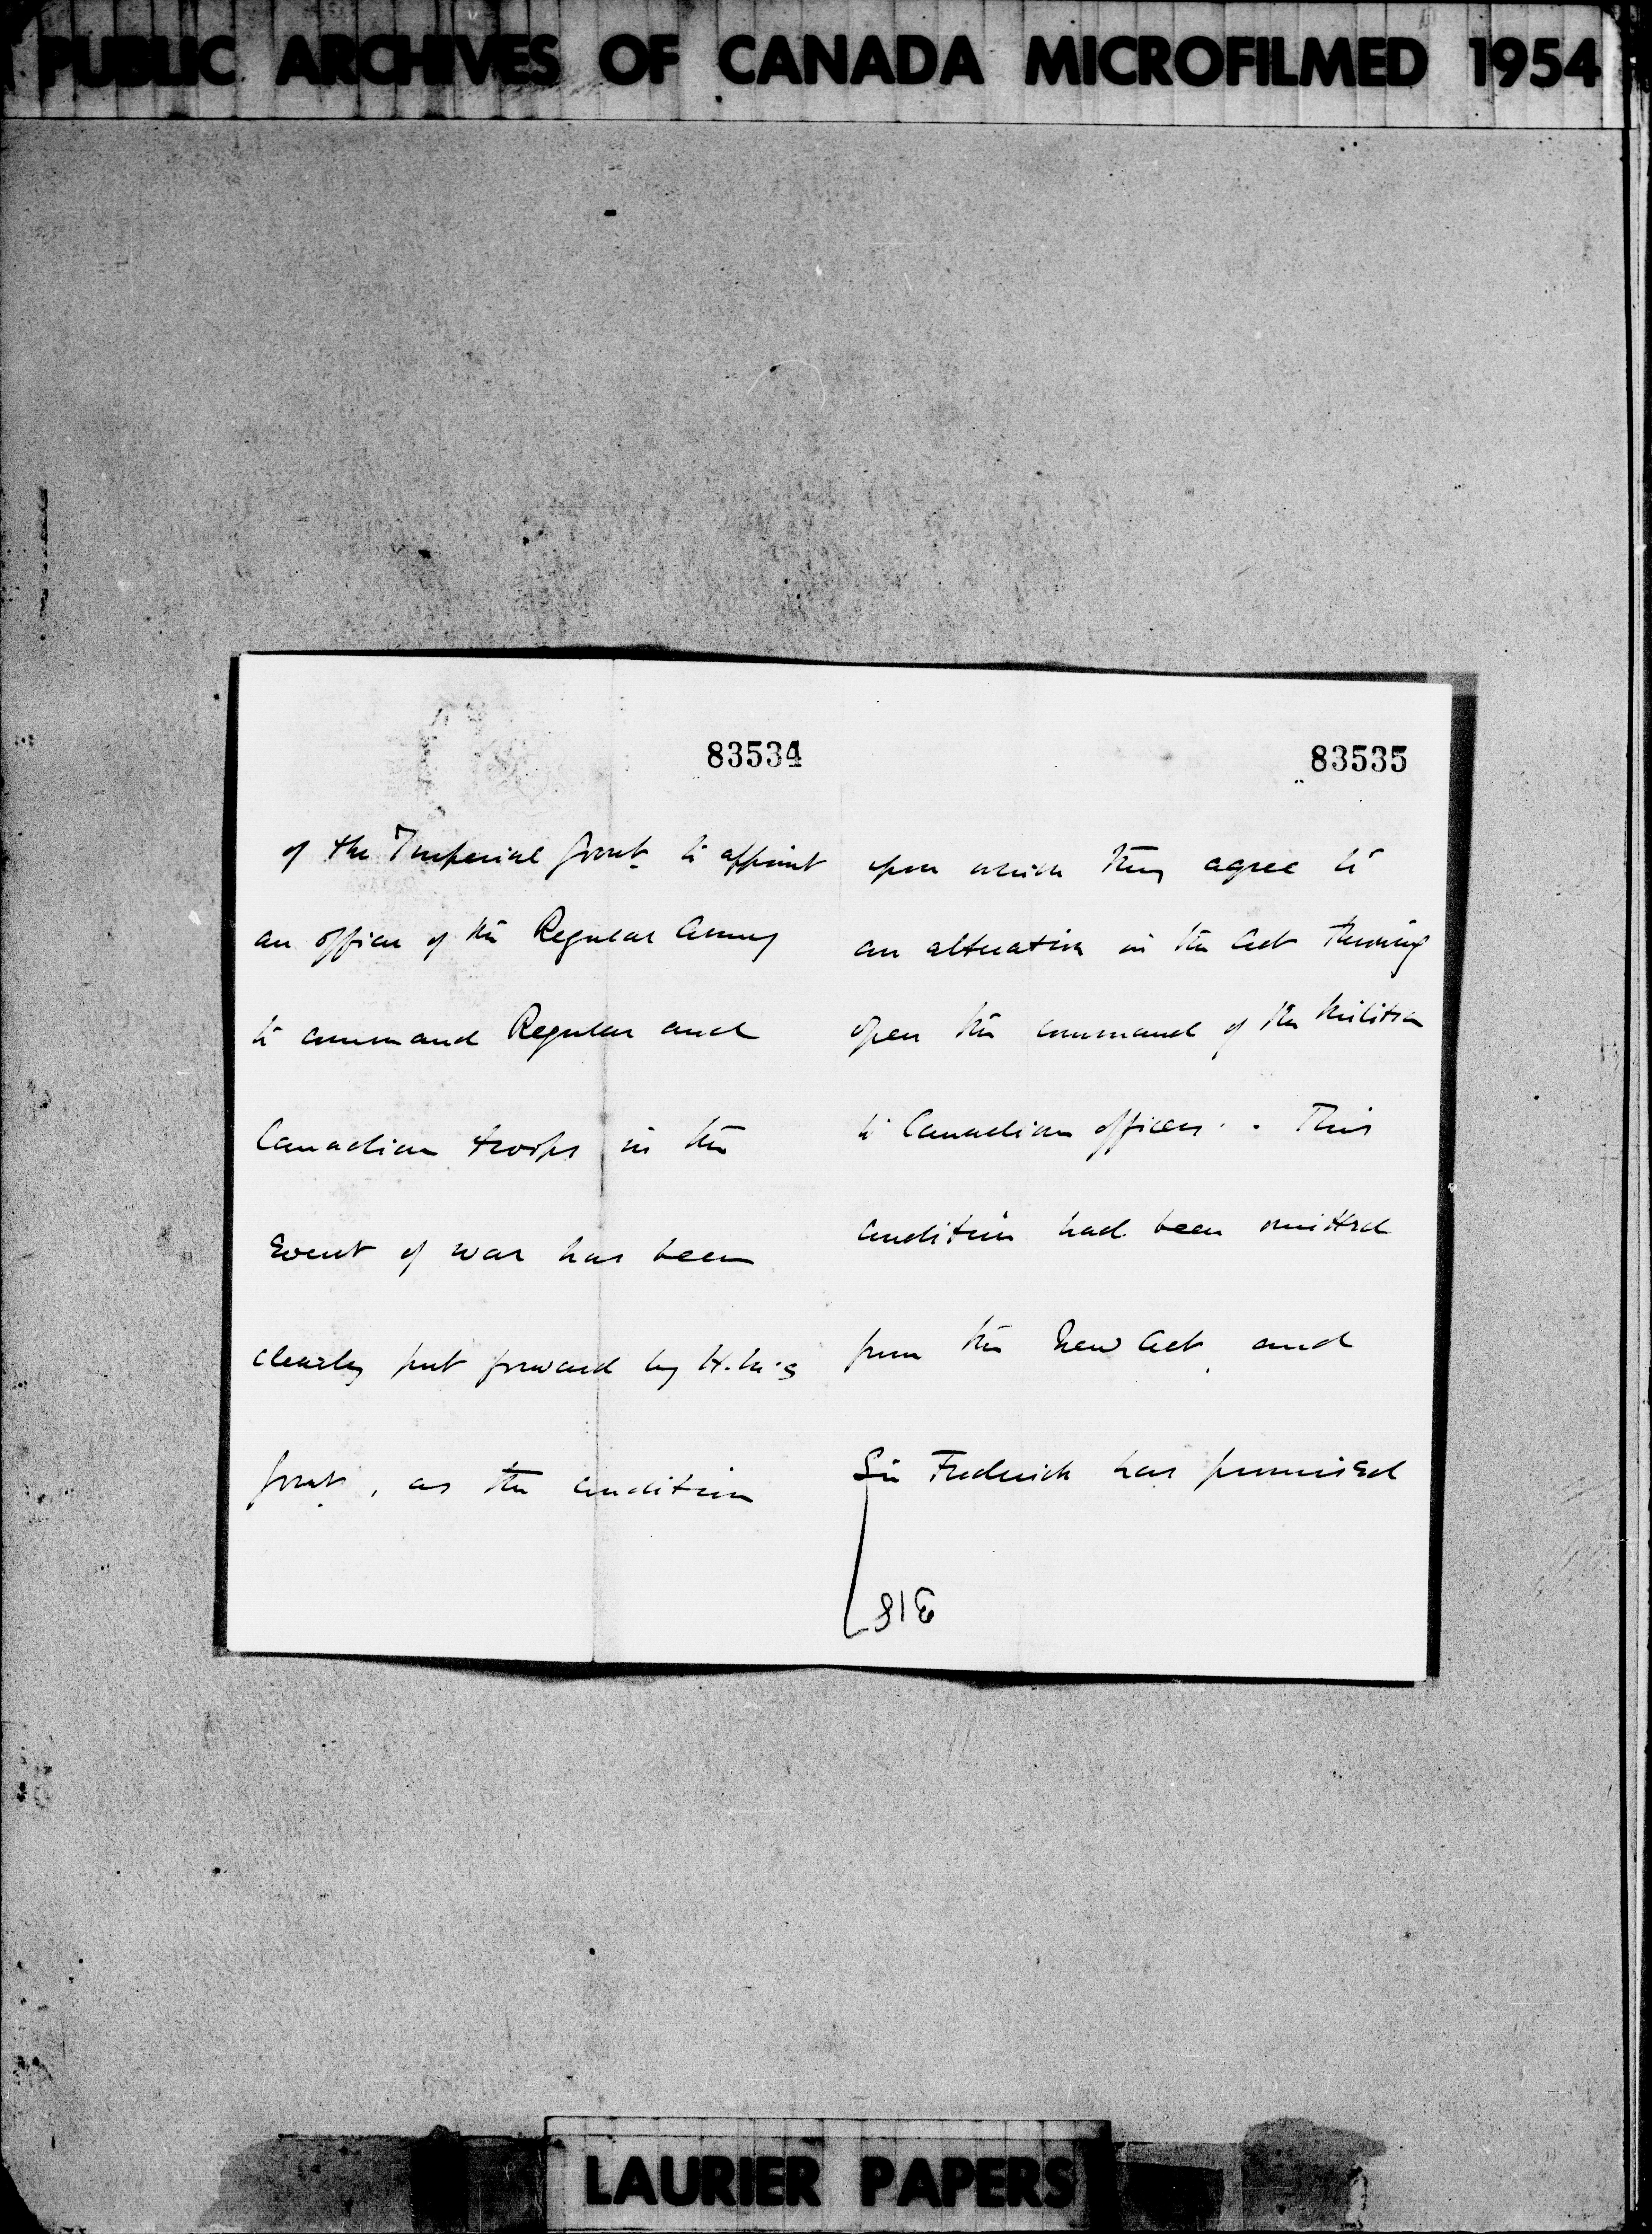 PUBLIC ARCHIVES OF CANADA MICROFILMED 1954
83534
of the Imperial Govt. to appoint
an officer of the Regular Army
to command Regular and
Canadian troops in the
Event of war has been
clearly put forward by H.M's
Govt., as the condition
83535
upon which they agree to
an alteration in the Act throwing
open the command of the Militia
to Canadian officers. This
condition had been omitted
from the New Act, and
Sir Frederick has promised
LAURIER PAPERS